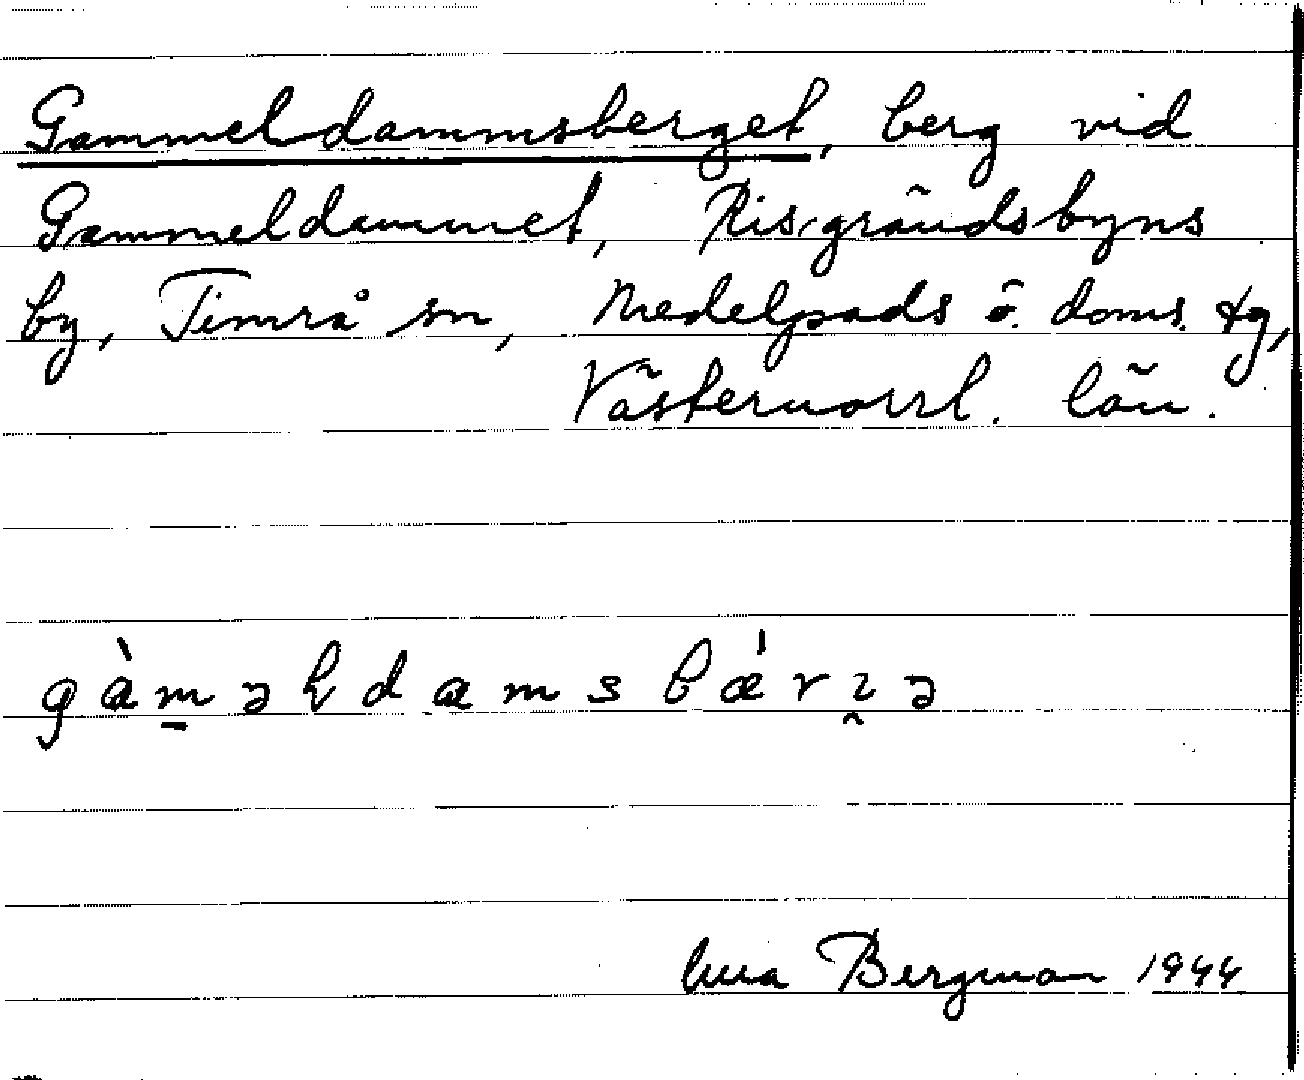 Gammeldammsberget, berg vid
Gammeldammet, Risgrändsbyns
by, Timrå sn, Medelpads ö. doms. tg,
Västernorrl. län.
gàm̠əldams bǽrzə
Bergman 1944